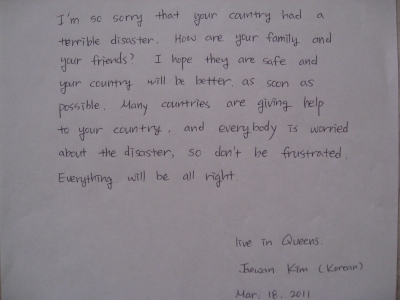 I'm so sorry that your country had a
terrible disaster. How are your family and
your friends? I hope they are safe and
your country will be better as soon as
possible. Many countries are giving help
to your country, and everybody is worried
about the disaster, so don't be frustrated.
Everything will be all right.
live in Queens.
Jaewan Kim (Korean)
Mar. 18. 2011